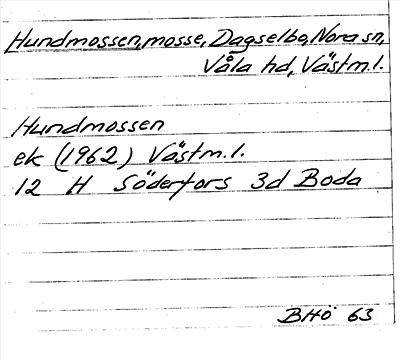 Hundmossen, mosse, Dagselbo, Nora sn,
Våla hd, Västm.l.
Hundmossen
ek (1962) Västm.l.
12 H Söderfors 3d Boda
BHö 63